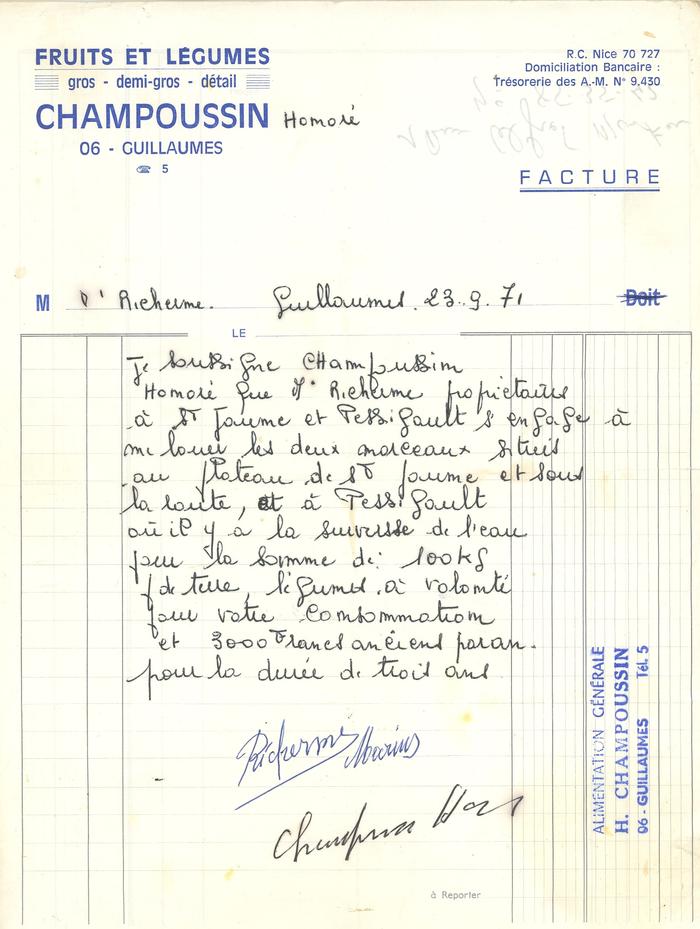 FRUITS ET LÉGUMES
gros - demi-gros - détail
CHAMPOUSSIN Honoré
06 - GUILLAUMES
☎ 5
R.C. Nice 70 727
Domiciliation Bancaire :
Trésorerie des A.-M. N° 9.430
FACTURE
M Richerme. Guillaumes. 23.9.71 Doit
LE
Je soussigne CHampoussin
Honoré que Mr Richerme propriétaires
à St Jaume et Pessigault s'engage à
me louer les deux morceaux situés
au plateau de St Jaume et sous
la route, et à Pessigault
où il y a la surverse de l'eau
pour la somme de: 100kg
de terre, légumes à volonté
pour votre Consommation
et 3000 Francs anciens paran.
pour la durée de trois ans
Richerme Marius
Champoussin Hon
à Reporter
ALIMENTATION GÉNÉRALE
H. CHAMPOUSSIN
06 - GUILLAUMES Tél. 5